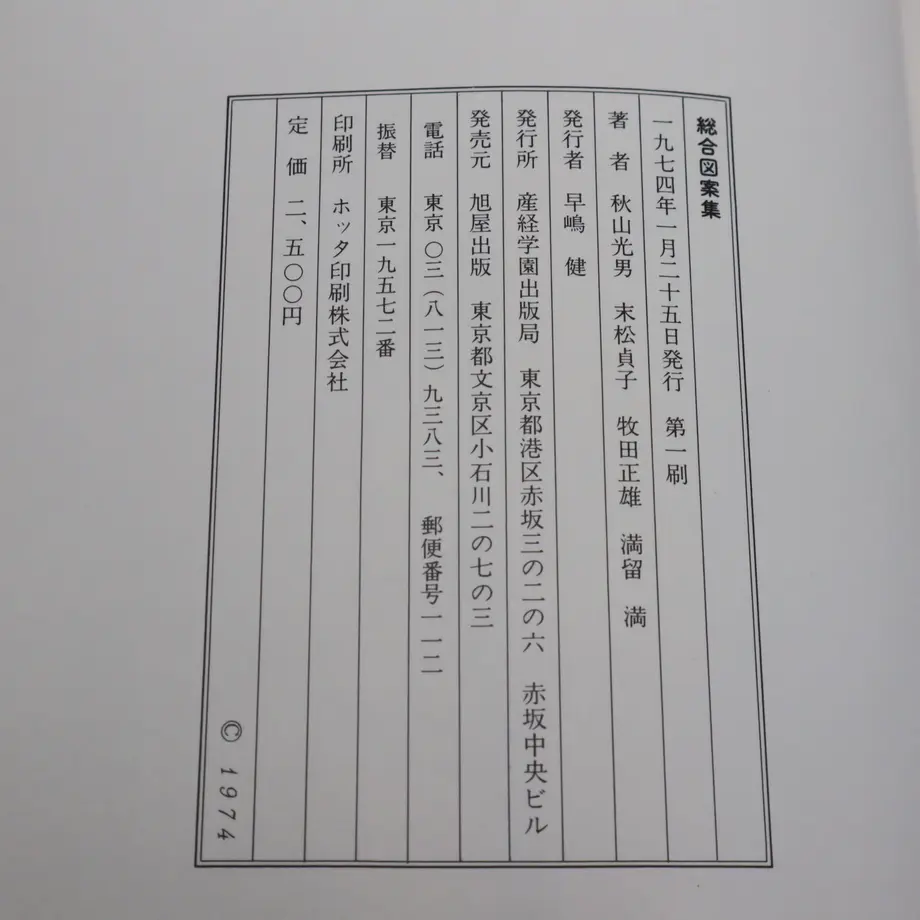 総合図案集
一九七四年一月二十五日発行　第一刷
著　者　秋山光男　末松貞子　牧田正雄　満留　満
発行者　早嶋　健
発行所　産経学園出版局　東京都港区赤坂三の二の六　赤坂中央ビル
発売元　旭屋出版　東京都文京区小石川二の七の三
電話　東京〇三(八一三)九三八三、　郵便番号一一二
振替　東京一九五七二番
印刷所　ホッタ印刷株式会社
定　価　二、五〇〇円
© 1974